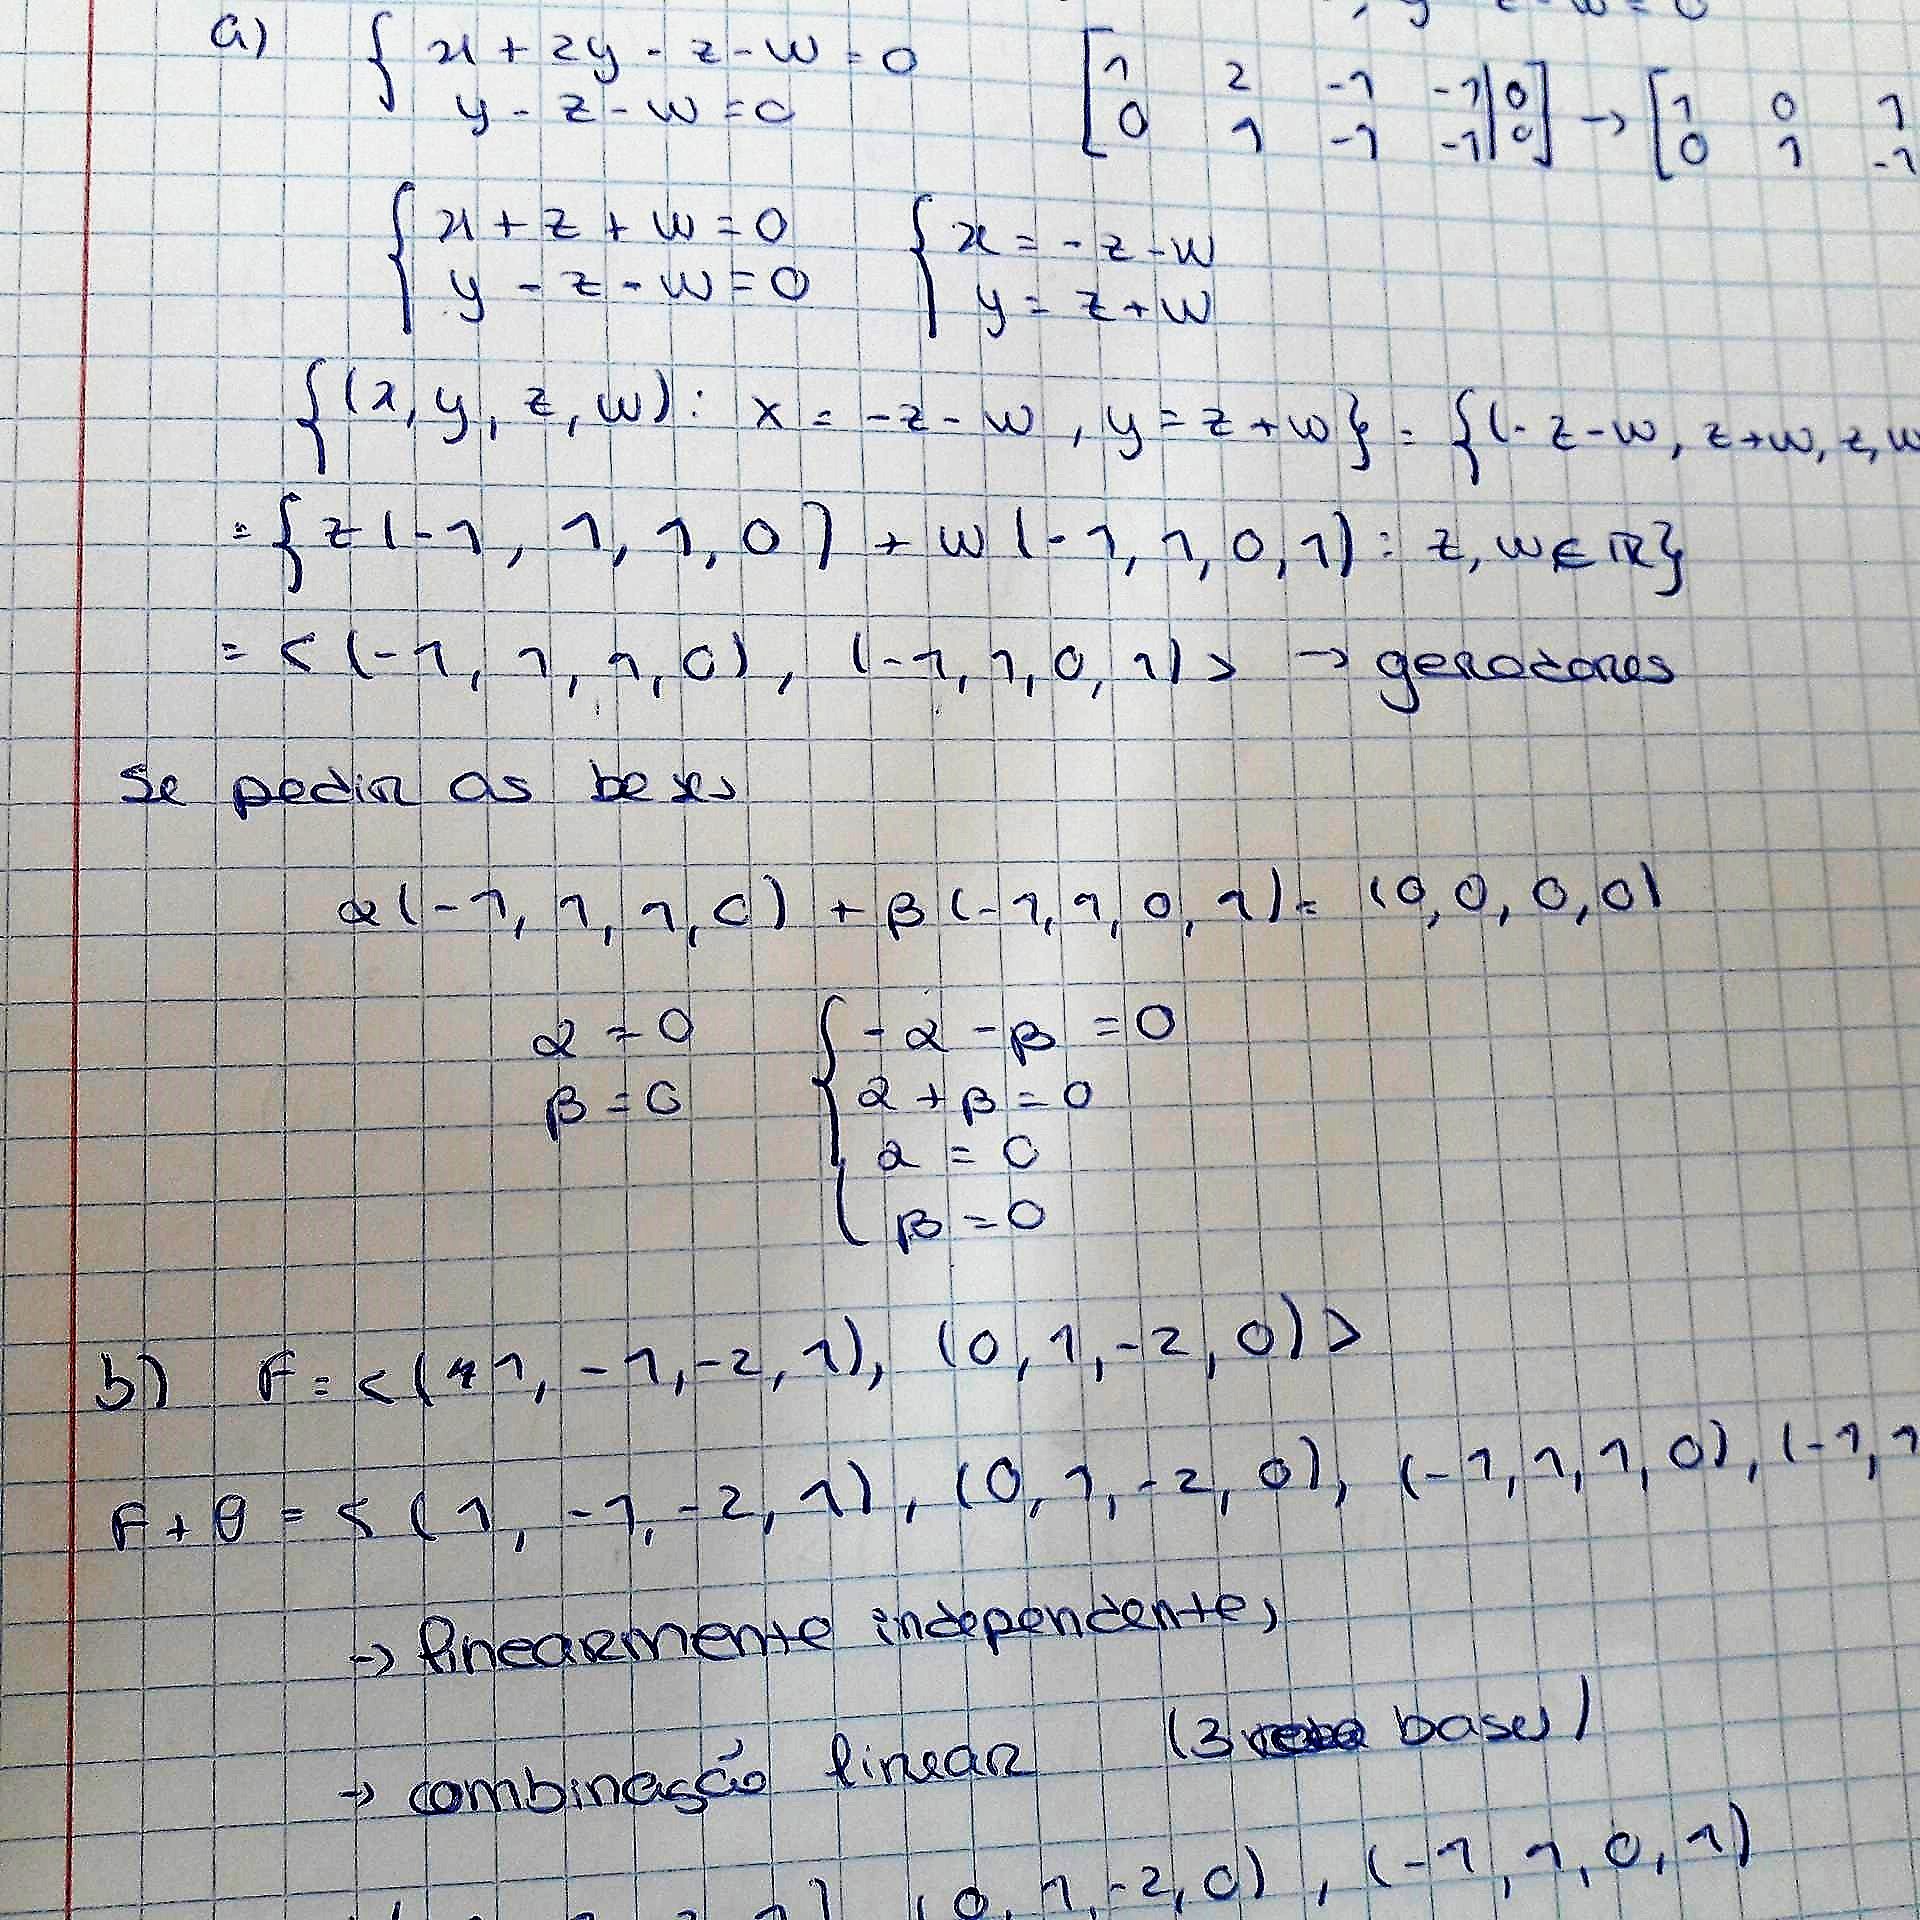 y z - w = 0
a) { x + 2y - z - w = 0
y - z - w = 0
[1 2 -1 -1 | 0
0 1 -1 -1 | 0] → [1 0 1
0 1 -1
{ x + z + w = 0
y - z - w = 0
{ x = - z - w
y = z + w
{(x, y, z, w): x = -z - w, y = z + w} = {(-z - w, z+w, z, w
= {z(-1, 1, 1, 0) + w(-1, 1, 0, 1): z, w ∈ IR}
= <(-1, 1, 1, 0), (-1, 1, 0, 1)> → geradores
Se pedir as bases
α(-1, 1, 1, 0) + β(-1, 1, 0, 1) = (0, 0, 0, 0)
α = 0
β = 0
{ -α - β = 0
α + β = 0
α = 0
β = 0
b) F = <(1, -1, -2, 1), (0, 1, -2, 0)>
F + G = <(1, -1, -2, 1), (0, 1, -2, 0), (-1, 1, 1, 0), (-1, 1
→ linearmente independente,
→ combinação linear (3 bases)
(0, 1, -2, 0), (-1, 1, 0, 1)